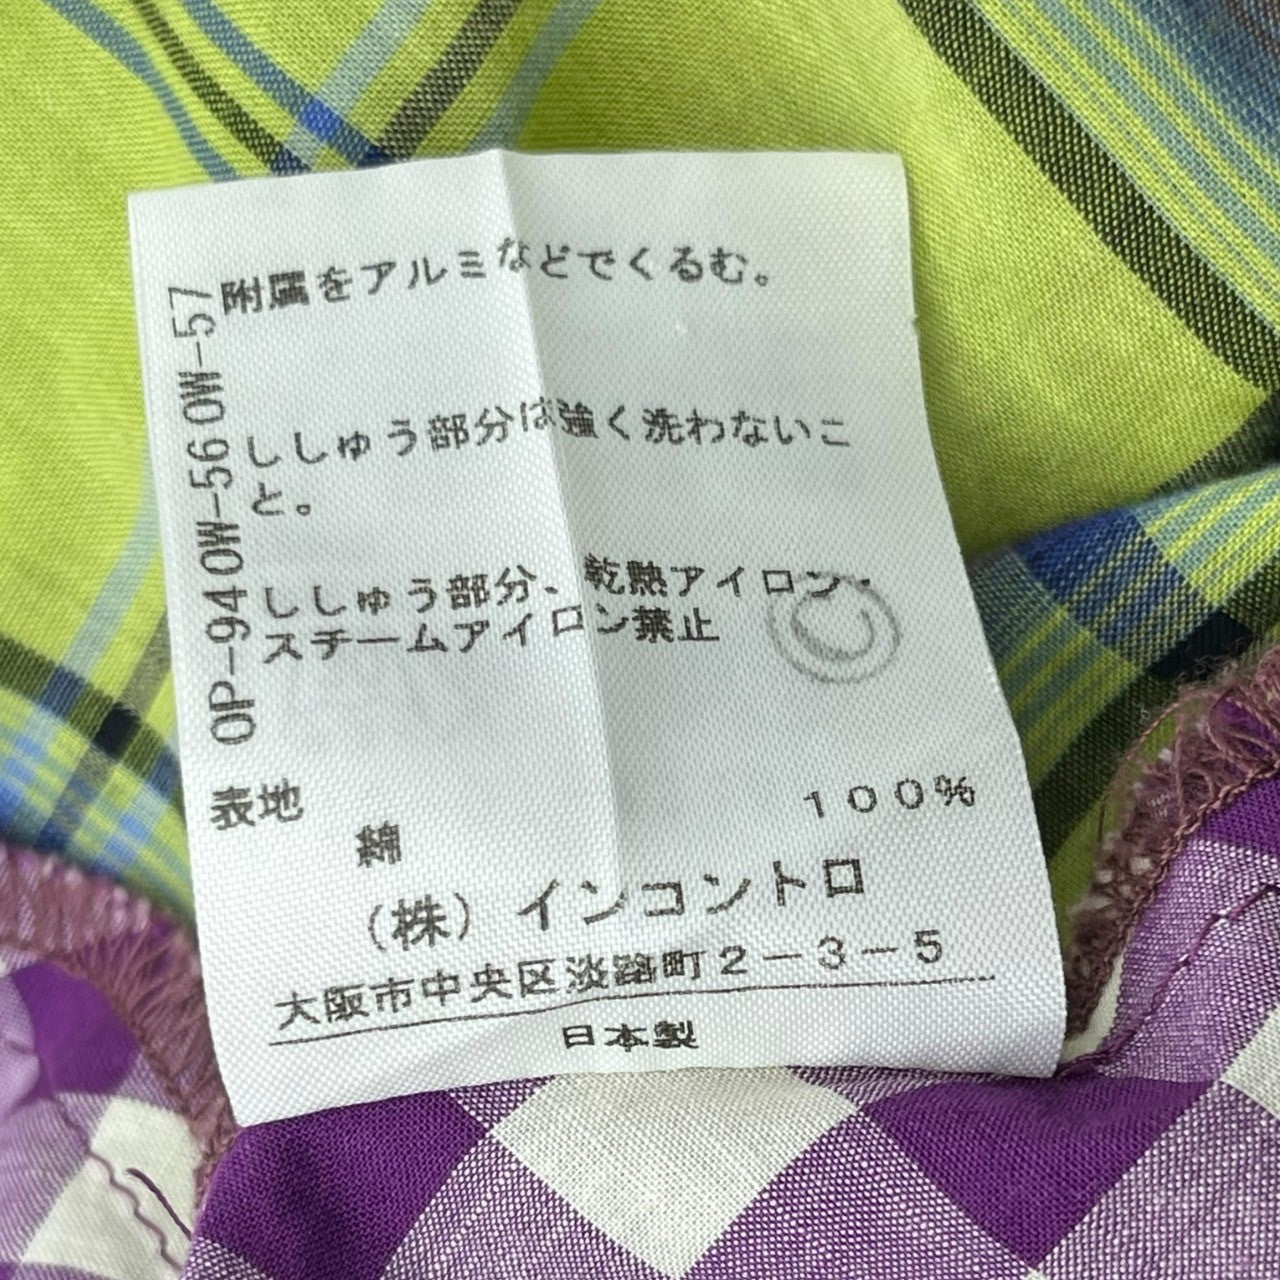 附属をアルミなどでくるむ。
ししゅう部分は強く洗わないこ
と。
ししゅう部分、乾熱アイロン・
スチームアイロン禁止
OP-940W-560W-57
表地
綿 100%
(株) インコントロ
大阪市中央区淡路町2-3-5
日本製